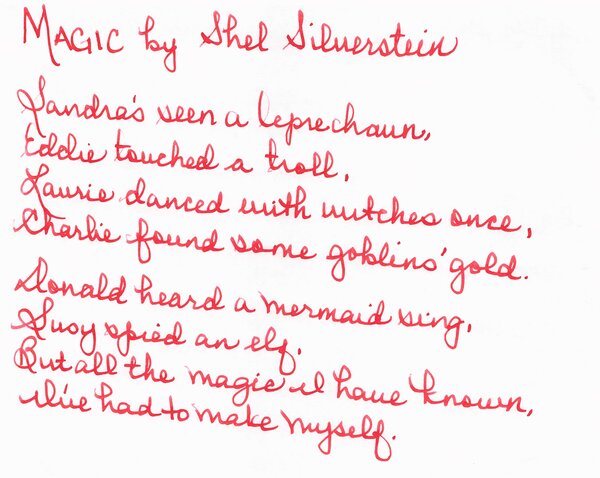 MAGIC by Shel Silverstein
Sandra's seen a leprechaun,
Eddie touched a troll,
Laurie danced with witches once,
Charlie found some goblins' gold.
Donald heard a mermaid sing,
Susy spied an elf,
But all the magic I have known,
I've had to make myself.